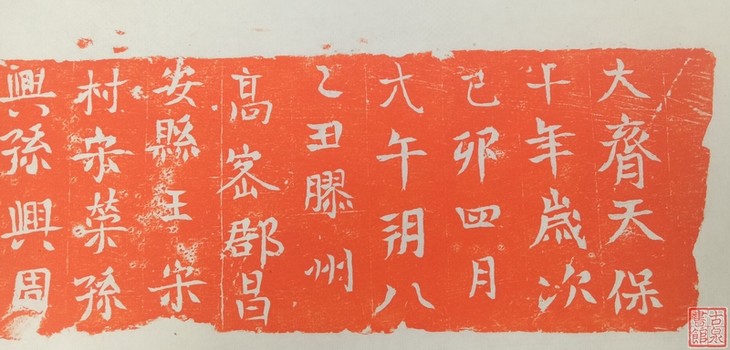 大齊天保
十年歲次
己卯四月
六午朔八
乙丑膠州
高密郡昌
安縣王宋
村宋榮孫
興孫興周